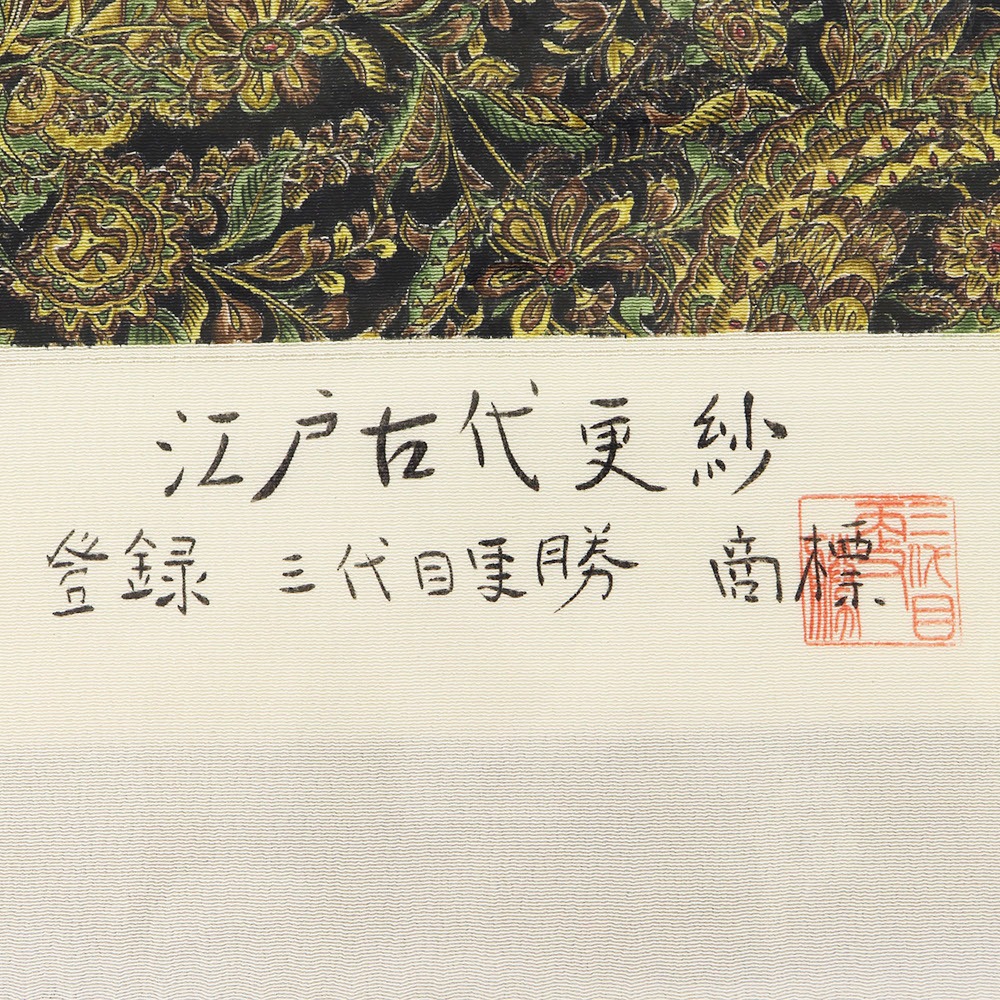 江戸古代更紗
登録 三代目更勝 商標
三代目